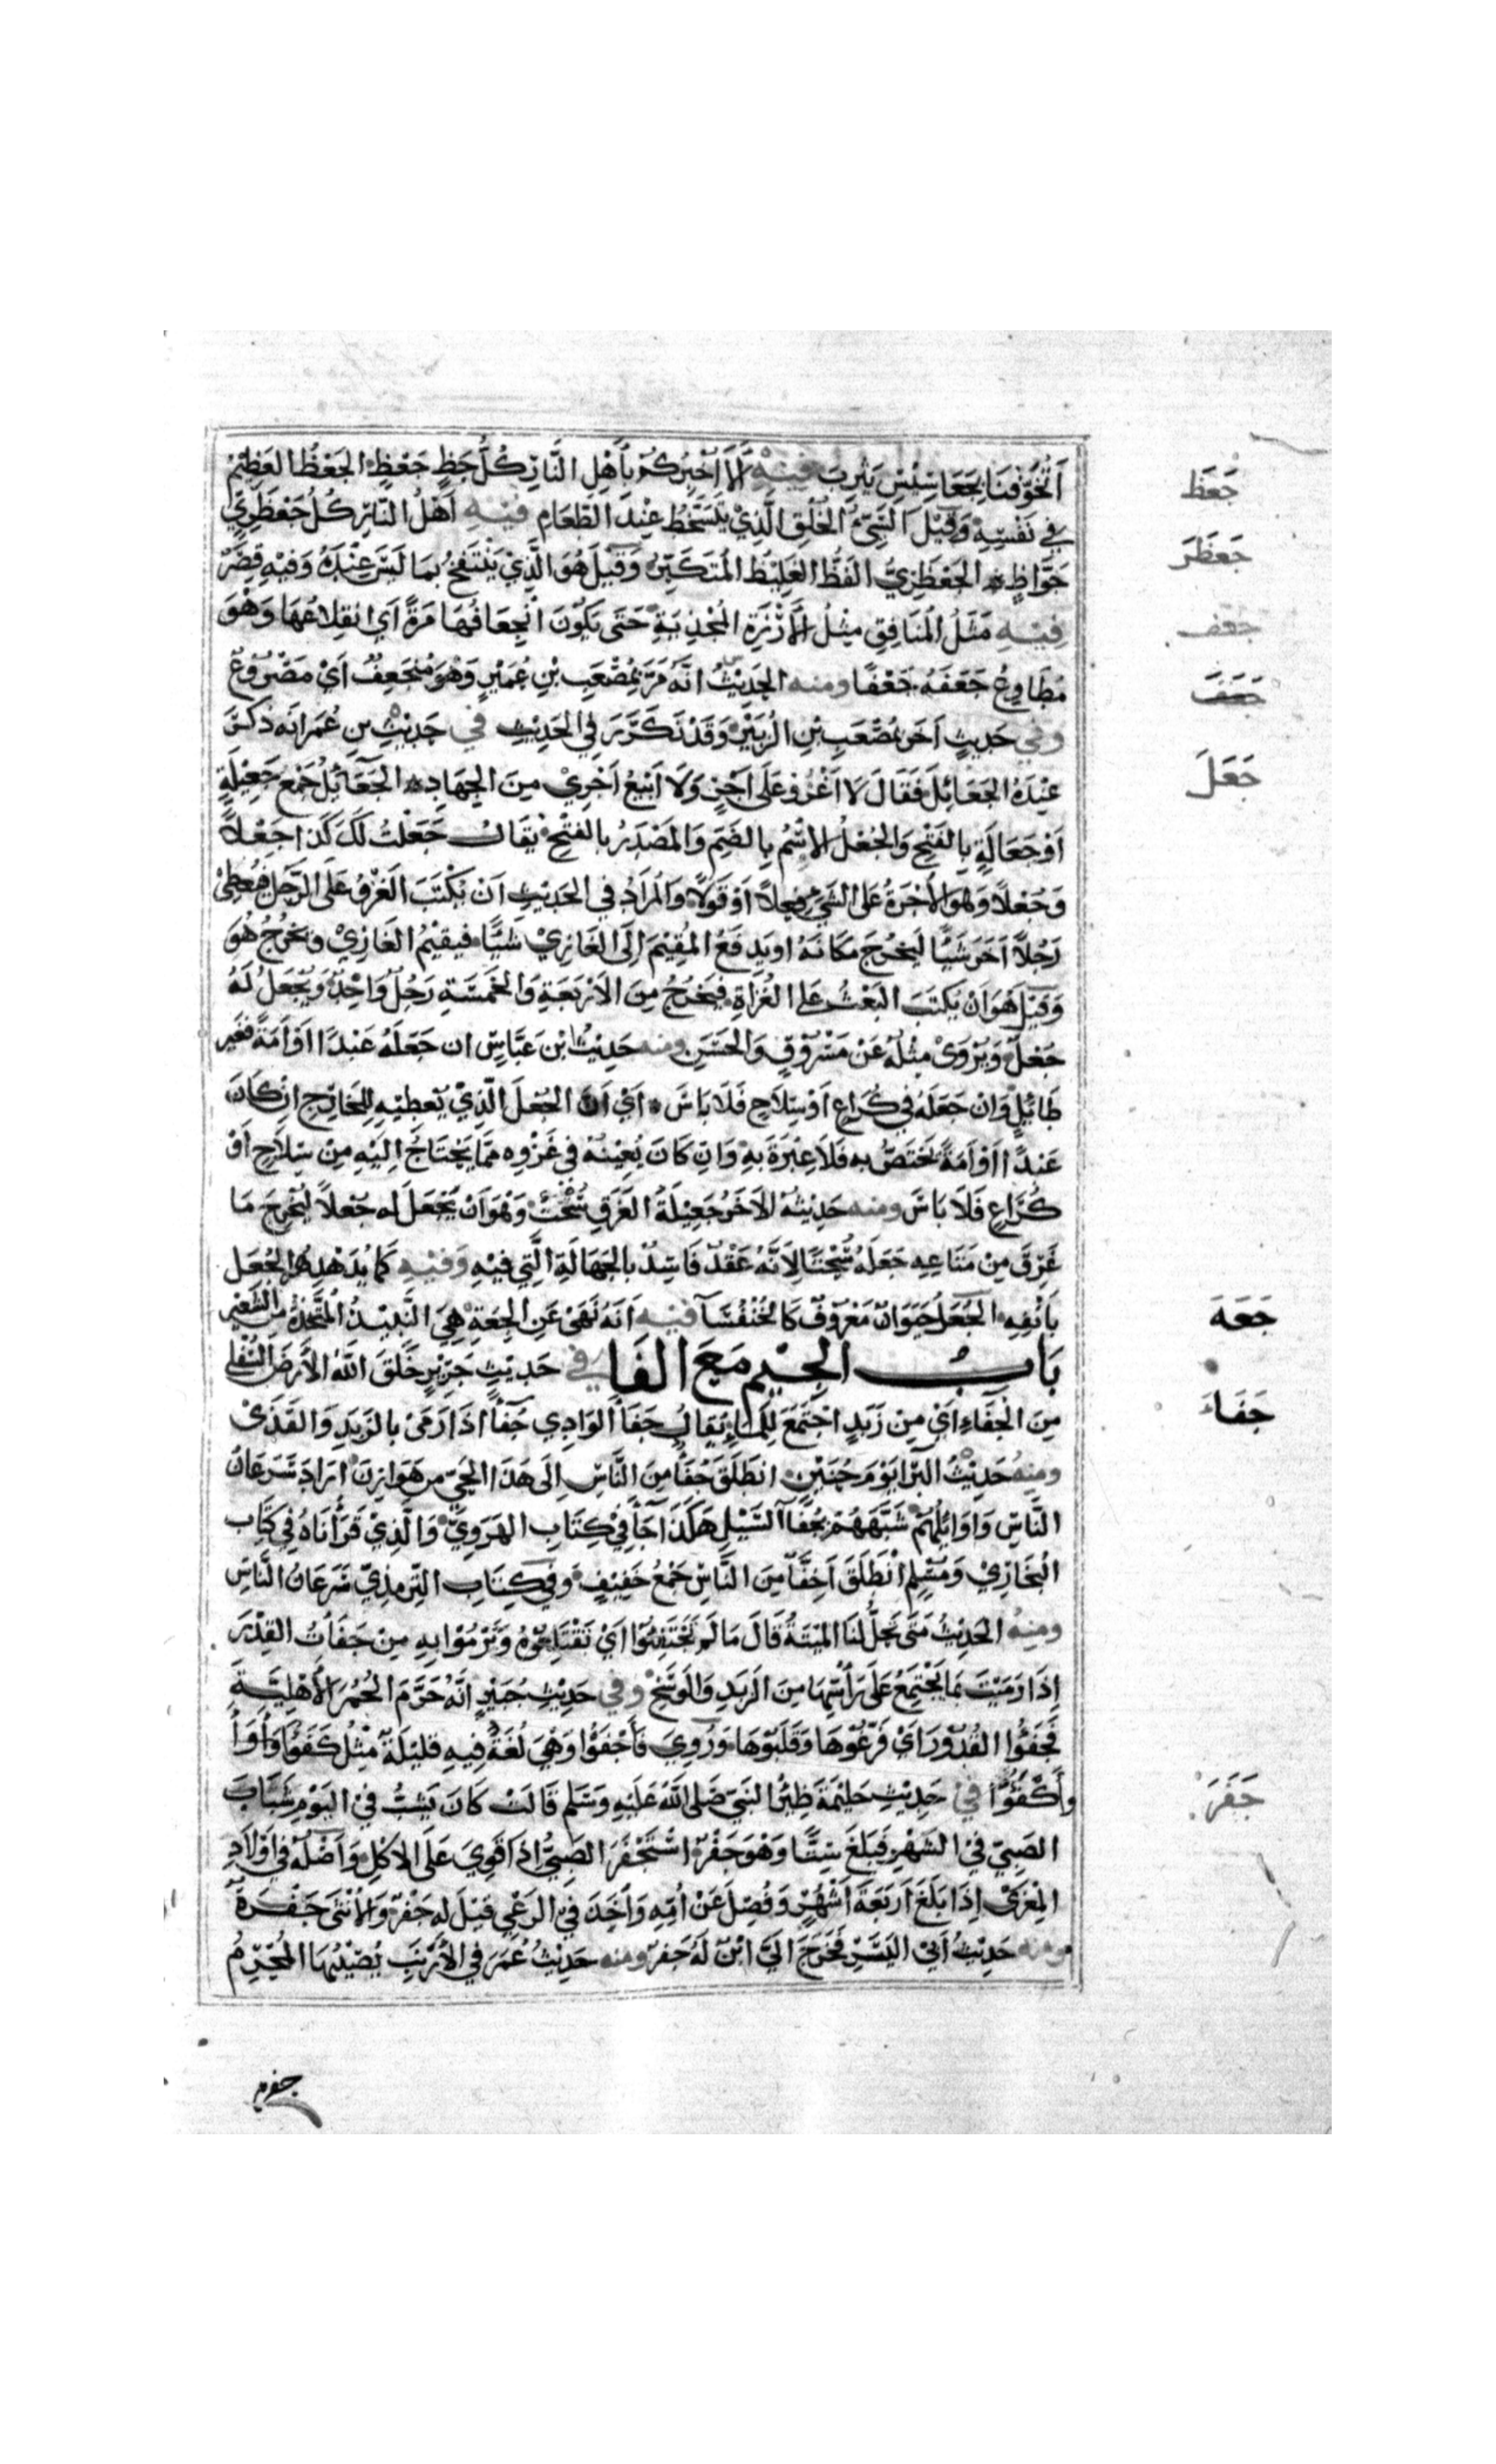 أَتُخَوِّفُنَا بِجَعَاسِيْسِ يَثْرِبَ فِيْهِ أَلَا أُخْبِرُكُمْ بِأَهْلِ النَّارِ كُلُّ جَظٍّ جَعْظٍ الجَعْظُ العَظِيْمُ
جَعَظَ
فِي نَفْسِهِ وَقِيْلَ السَّيِّءُ الخُلُقِ الَّذِيْ يَتَسَخَّطُ عِنْدَ الطَّعَامِ فِيْهِ أَهْلُ النَّارِ كُلُّ جَعْظَرِيٍّ
جَعْظَرَ
جَوَّاظٍ الجَعْظَرِيُّ الفَظُّ الغَلِيْظُ المُتَكَبِّرُ وَقِيْلَ هُوَ الَّذِيْ يَنْتَفِخُ بِمَا لَيْسَ عِنْدَهُ وَفِيْهِ قِصَرٌ
فِيْهِ مَثَلُ المُنَافِقِ مِثْلُ الأَرْزَةِ المُجْذِيَةِ حَتَّى يَكُوْنَ انْجِعَافُهَا مَرَّةً أَيْ انْقِلَاعُهَا وَهْوَ
جعف
مُطَاوِعُ جَعَفَهُ جَعْفًا ومنه الحَدِيْثُ أَنَّهُ مَرَّ بِمُصْعَبِ بْنِ عُمَيْرٍ وَهْوَ مُنْجَعِفٌ أَيْ مَصْرُوْعٌ
وفي حَدِيثٍ آخَرَ بِمُصْعَبِ بْنِ الزُّبَيْرِ وَقَدْ تَكَرَّرَ فِي الحَدِيْثِ في حَدِيْثِ بن عُمَرَ أَنَّهُ ذُكِرَ
عِنْدَهُ الجَعَائِلُ فَقَالَ لَا أَغْزُو عَلَى أَجْرٍ وَلَا أَبِيْعُ أَجْرِيْ مِنَ الجِهَادِ الجَعَائِلُ جَمْعُ جَعِيْلَةٍ
جَعَلَ
أَوْ جَعَالَةٍ بِالفَتْحِ وَالجُعْلُ الاِسْمُ بِالضَّمِّ وَالمَصْدَرُ بِالفَتْحِ يُقَالُ جَعَلْتُ لَكَ كَذَا جَعْلًا
وَجُعْلًا وَهُوَ الأُجْرَةُ عَلَى الشَّيْءِ فِعْلًا أَوْ قَوْلًا وَالمُرَادُ فِي الحَدِيْثِ أَنْ يُكْتَبَ الغَزْوُ عَلَى الرَّجُلِ فَيُعْطِيْ
رَجُلًا آخَرَ شَيْئًا لِيَخْرُجَ مَكَانَهُ أو يَدْفَعُ المُقِيْمُ إِلَى الغَازِيْ شَيْئًا فَيُقِيْمُ الغَازِيْ وَيَخْرُجُ هُوَ
وَقِيْلَ هُوَ أَنْ يُكْتَبَ البَعْثُ عَلَى الغُزَاةِ فَيَخْرُجُ مِنَ الأَرْبَعَةِ وَالخَمْسَةِ رَجُلٌ وَاحِدٌ وَيُجْعَلُ لَهُ
جُعْلٌ وَيُرْوَى مِثْلُهُ عَنْ مَسْرُوْقٍ وَالحَسَنِ ومنه حَدِيْثُ ابْنِ عَبَّاسٍ إن جَعَلَهُ عَبْدًا أَوْ أَمَةً فَغَيْر
طَائِلٍ وَإِنْ جَعَلَهُ فِي كُرَاعٍ أَوْ سِلَاحٍ فَلَا بَاسَ أَيْ أَنَّ الجُعْلَ الَّذِيْ يُعْطِيْهِ لِلْخَارِجِ إِنْ كَانَ
عَبْدًا أَوْ أَمَةً يَخْتَصُّ به فَلَا عِبْرَةَ بِهِ وَإِنْ كَانَ يُعِيْنُهُ فِي غَزْوِهِ مِمَّا يَحْتَاجُ إِلَيْهِ مِنْ سِلَاحٍ أَوْ
كُرَاعٍ فَلَا بَاسَ ومنه حَدِيْثُهُ الآخَرُ جَعِيْلَةُ الغَرَقِ سُحْتٌ وَهْوَ أَنْ يَجْعَلَ له جُعْلًا لِيُخْرِجَ مَا
غَرِقَ مِنْ مَتَاعِهِ جَعَلَهُ سُحْتًا لِأَنَّهُ عَقْدٌ فَاسِدٌ بِالجَهَالَةِ الَّتِي فِيْهِ وَفِيْهِ كَمَا يُدَهْدِهُ الجُعَلُ
بِأَنْفِهِ الجُعَلُ حَيَوَانٌ مَعْرُوْفٌ كَالخُنْفُسَآ فِيْهِ أَنَّهُ نَهَى عَنِ الجِعَةِ هِيَ النَّبِيْذُ المُتَّخَذُ مِنَ الشَّعِيْرِ
جَعَهَ
بَابُ الجِيْمِ مَعَ الفَا في حَدِيْثِ جَرِيْرٍ خَلَقَ اللهُ الأَرْضَ السُّفْلَى
مِنَ الجُفَاءِ أَيْ مِنْ زَبَدٍ اجْتَمَعَ لِلْمَاءِ يُقَالُ جَفَأَ الوَادِي جُفَآءً إِذَا رَمَى بِالزَّبَدِ وَالقَذَى
جَفَاءَ
ومنهُ حَدِيْثُ البَرَا يَوْمَ حُنَيْنٍ انْطَلَقَ جُفَآءٌ مِنَ النَّاسِ إِلَى هَذَا الحَيِّ مِنْ هَوَازِنَ أَرَادَ سَرَعَانَ
النَّاسِ وَأَوَائِلَهُمْ شَبَّهَهُمْ بِجُفَآءِ السَّيْلِ هَكَذَا جَآءَ فِيْ كِتَابِ الهَرَوِيِّ وَالَّذِيْ قَرَأْنَاهُ فِي كِتَابِ
البُخَارِيْ وَمُسْلِمٍ انْطَلَقَ أَخِفَّآءُ مِنَ النَّاسِ جَمْعُ خَفِيْفٍ وَفِي كِتَابِ التِّرْمِذِيْ سَرَعَانُ النَّاسِ
ومنهُ الحَدِيْثُ مَتَى تَحِلُّ لَنَا المَيْتَةُ قَالَ مَا لَمْ تَجْتَفِئُوْا أَيْ تَقْتَلِعُوْهُ وَتَرْمُوْا بِهِ مِنْ جَفَأْتُ القِدْرَ
إِذَا رَمَيْتَ بِمَا يَجْتَمِعُ عَلَى رَأْسِهَا مِنَ الزَّبَدِ وَالوَسَخِ وفي حَدِيْثِ جُبَيْرٍ أَنَّهُ حَرَّمَ الحُمُرَ الأَهْلِيَّةَ
فَجَفَؤُوا القُدُوْرَ أَيْ فَرَّغُوْهَا وَقَلَبُوْهَا وَرُوِيَ فَأَجْفَؤُوا وَهْيَ لُغَةٌ فِيهِ قَلِيْلَةٌ مِثْلُ كَفَؤُوا
وَأَكْفَؤُوْا في حَدِيْثِ حَلِيْمَةَ ظِئْرِ النَّبِيِّ صَلَّى اللهُ عَلَيْهِ وَسَلَّم قَالَتْ كَانَ يَشِبُّ فِي اليَوْمِ شَبَابَ
جَفَرَ
الصَّبِيِّ فِي الشَّهْرِ فَبَلَغَ سِتًّا وَهْوَ جَفْرٌ اسْتَجْفَرَ الصَّبِيُّ إِذَا قَوِيَ عَلَى الأَكْلِ وَأَصْلُهُ فِي أَوْلَادِ
المِعْزَى إِذَا بَلَغَ أَرْبَعَةَ أَشْهُرٍ وَفُصِلَ عَنْ أُمِّهِ وَأَخَذَ فِي الرَّعْيِ قِيْلَ لَهُ جَفْرٌ وَالأُنْثَى جَفْرَةٌ
ومنه حَدِيْثُ أَبِيْ اليَسَرِ فَخَرَجَ إِلَيَّ ابْنٌ لَهُ جَفْرٌ ومنه حَدِيْثُ عُمَرَ فِي الأَرْنَبِ يُصِيْبُهَا المُحْرِمُ
جفره